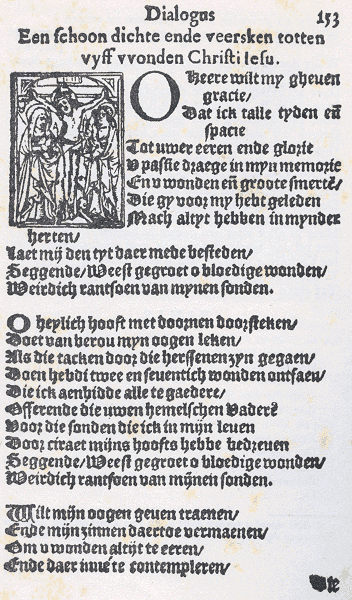 Dialogus 153
Een schoon dichte ende veersken totten
vyff vvonden Christi Iesu.
O Heere wilt my gheuen
gracie/
Dat ick talle tyden eñ
spacie
Tot uwer eeren ende glorie
V passie draege in myn memorie
En v wonden eñ groote smertẽ/
Die gy voor my hebt geleden
Mach altyt hebben in mynder
herten/
Laet mij den tyt daer mede besteden/
Seggende/ Weest gegroet o bloedige wonden/
Weirdich rantsoen van mynen sonden.
O heylich hooft met doornen doorsteken/
Doet van berou myn oogen leken/
Als die tacken door die herssenen zyn gegaen/
Doen hebdi twee en seuentich wonden ontfaen/
Die ick aenbidde alle te gaedere/
Offerende die uwen hemelschen Vader?
Voor die sonden die ick in mijn leuen
Door ciraet mijns hoofts hebbe bedreuen
Seggende/ Weest gegroet o bloedige wonden/
Weirdich rantsoen van mijnen sonden.
Wilt mijn oogen geuen traenen/
Ende mijn zinnen daertoe vermaenen/
Om v wonden altijt te eeren/
Ende daer inne te contempleren/
Vte